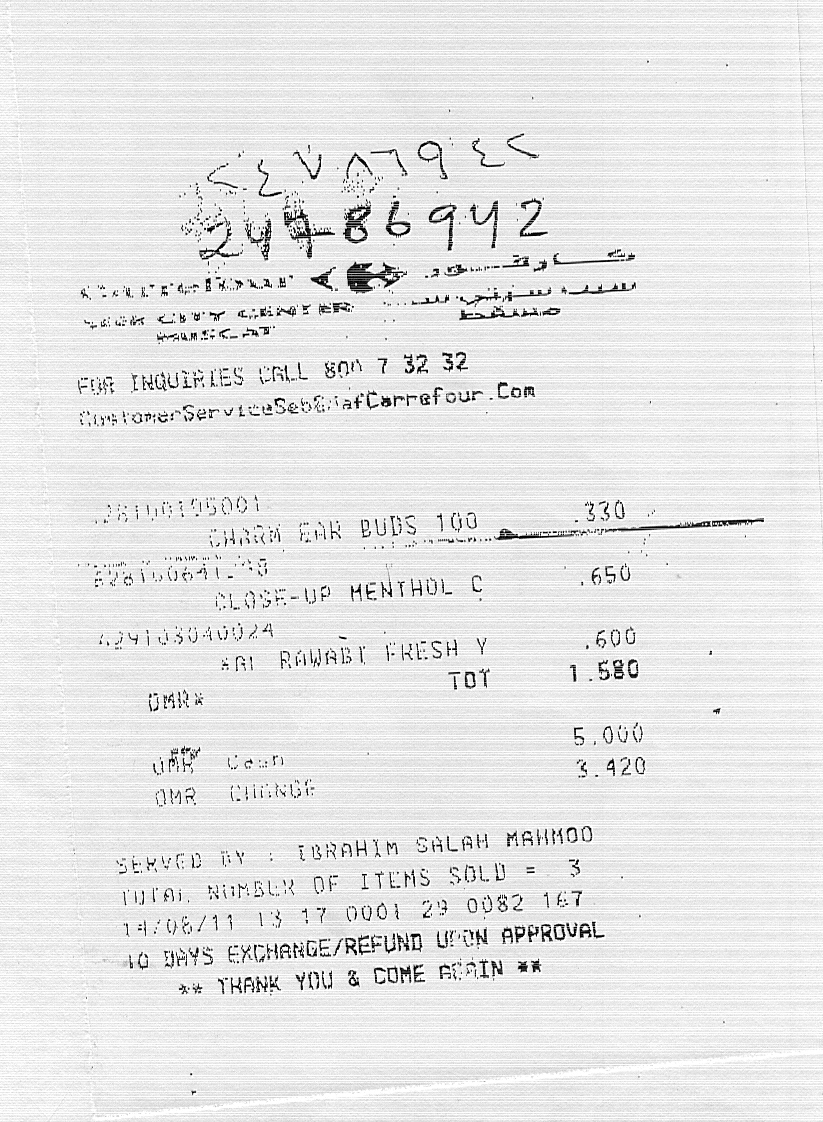 ٢٤٧٨٦٩٤٢
24786942
Carrefour كارفور
SEEB CITY CENTER
MUSCAT مسقط
FOR INQUIRIES CALL 800 7 32 32
CustomerServiceSeb@MafCarrefour.Com
CHARM EAR BUDS 100 .330
CLOSE-UP MENTHOL C .650
*AL RAWABI FRESH Y .600
OMR* TOT 1.580
OMR Cash 5.000
OMR CHANGE 3.420
SERVED BY : IBRAHIM SALAH MAHMOO
TOTAL NUMBER OF ITEMS SOLD = 3
14/06/11 13 17 0001 29 0082 167
10 DAYS EXCHANGE/REFUND UPON APPROVAL
** THANK YOU & COME AGAIN **